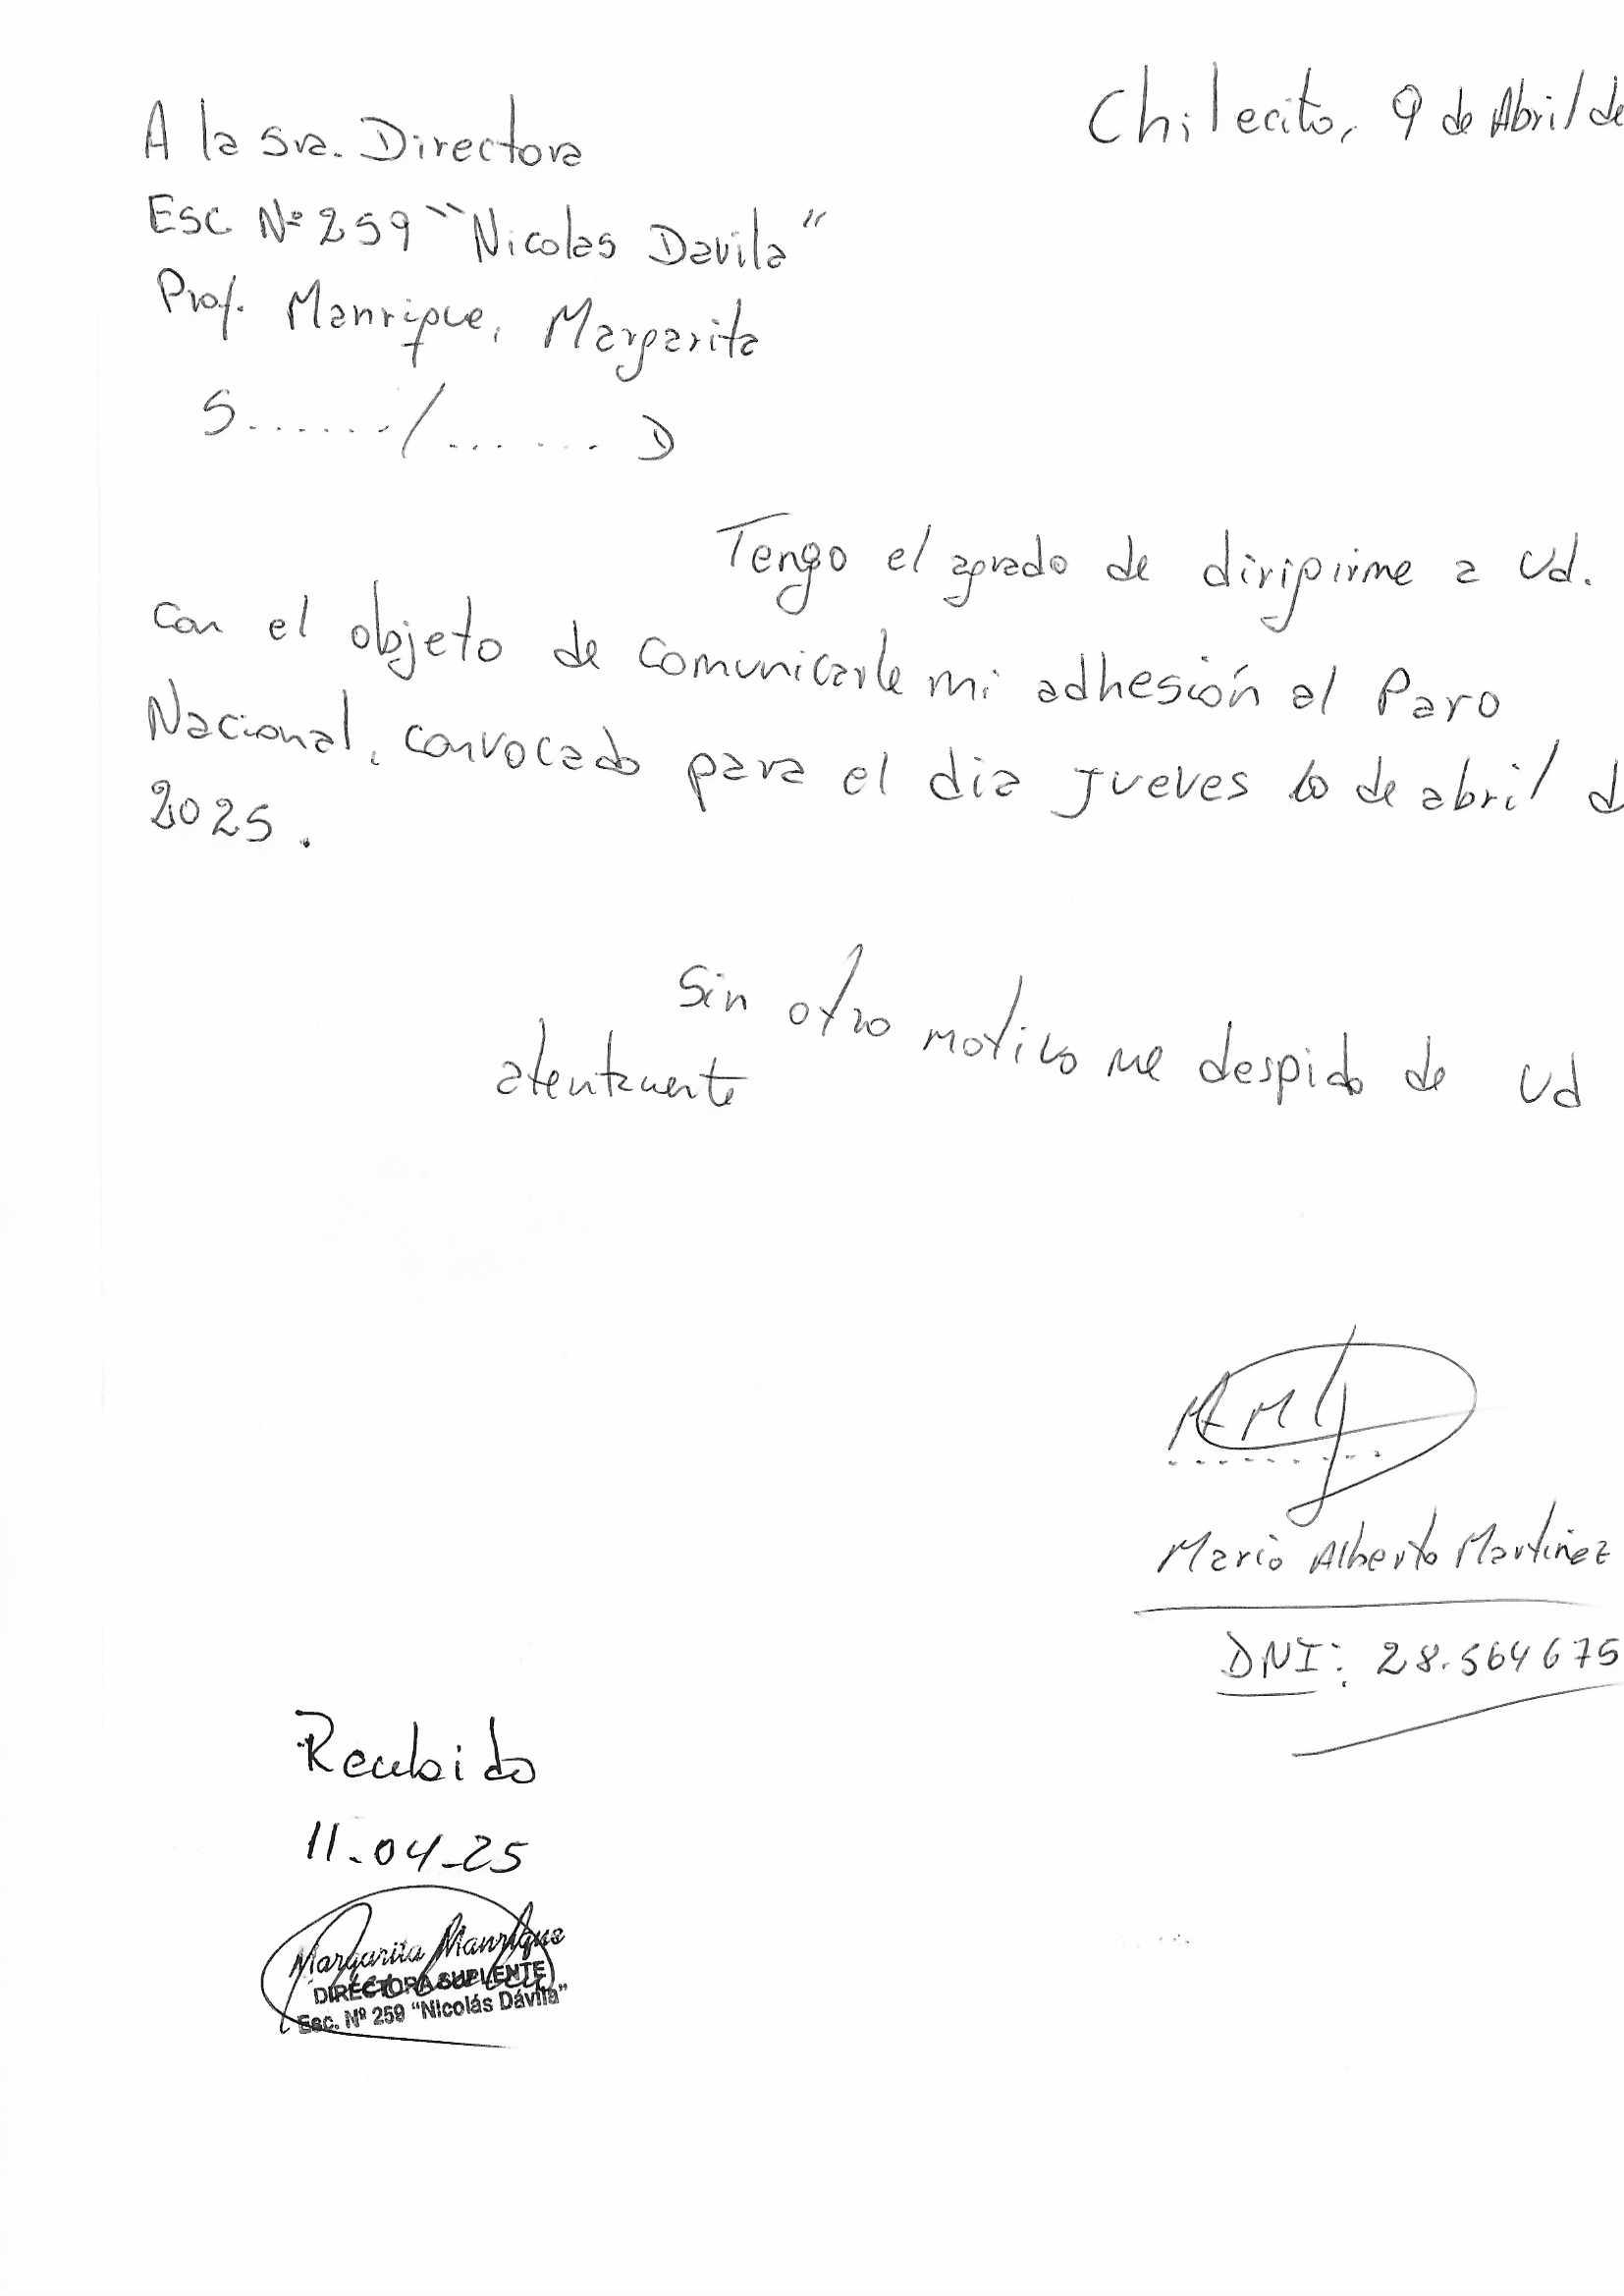 Chilecito, 9 de Abril de
A la Sra. Directora
Esc Nº 259 "Nicolas Davila"
Prof. Manrique, Margarita
S....../....... D
Tengo el agrado de dirigirme a Ud.
con el objeto de comunicarle mi adhesión al Paro
Nacional, convocado para el dia jueves 10 de abril d
2025.
Sin otro motivo me despido de Ud
atentamente
Mario Alberto Martinez
DNI: 28.564675
Recibido
11-04-25
Margarita Manrique
DIRECTORA SUPLENTE
Esc. Nº 259 "Nicolás Dávila"